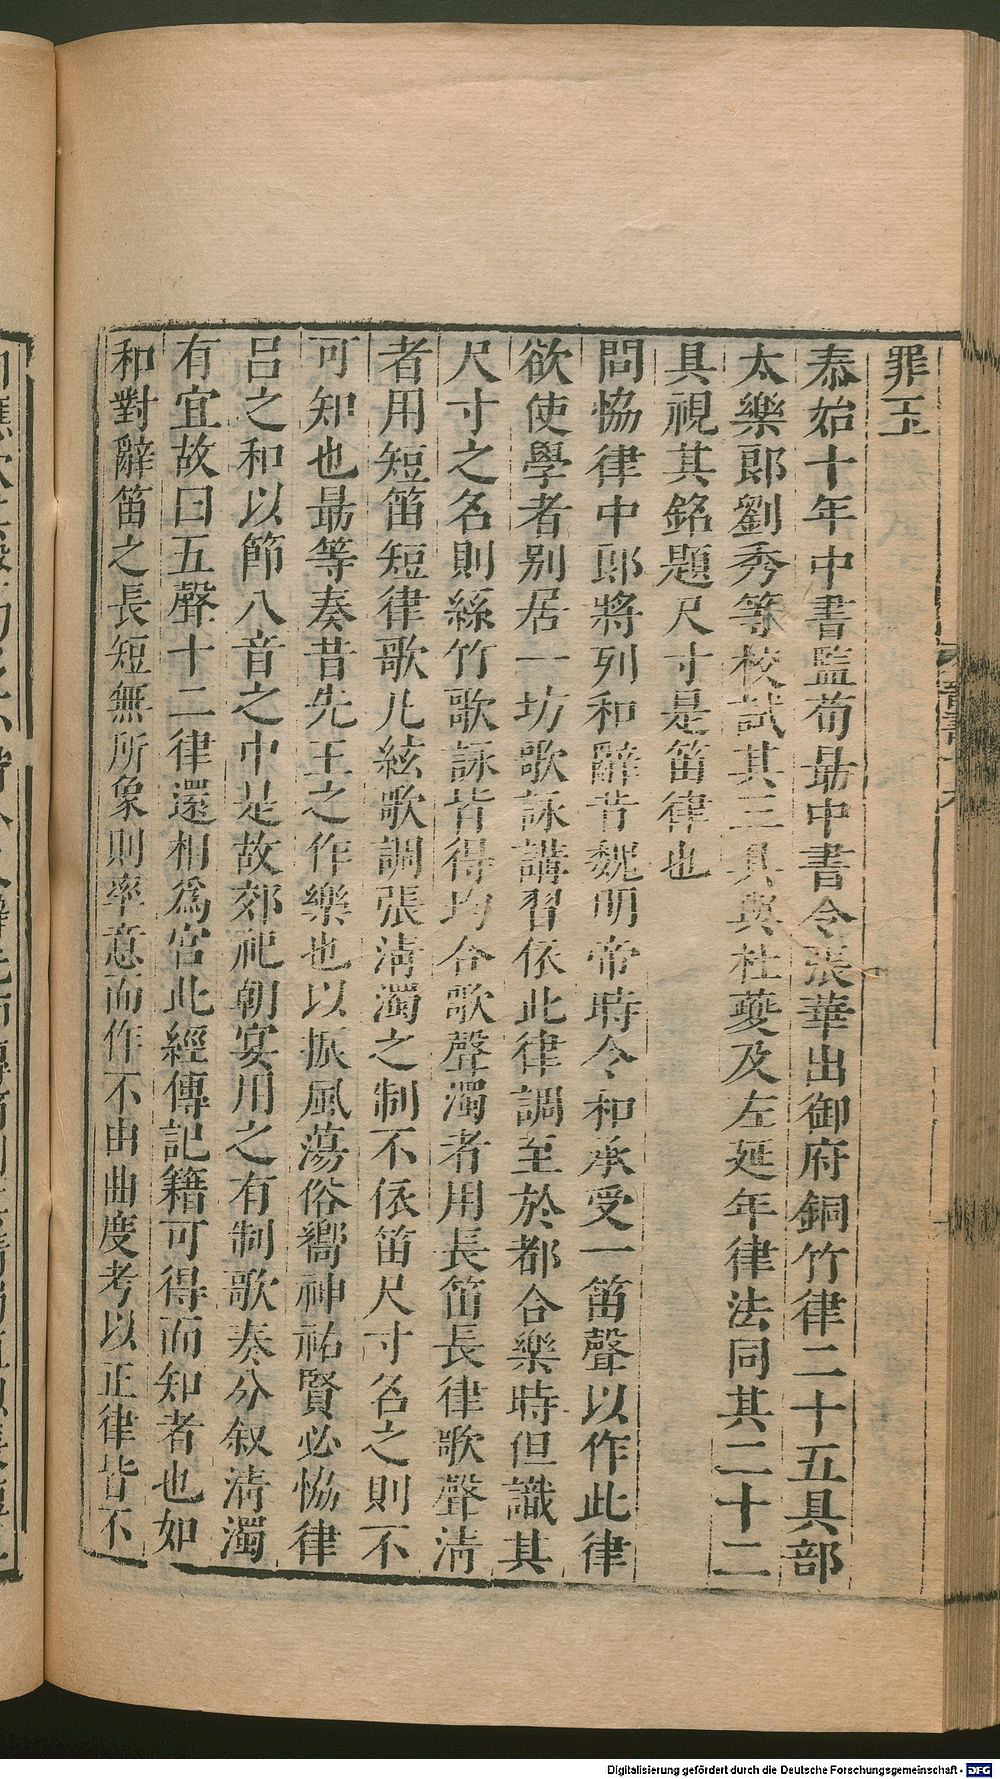 罪玉
泰始十年中書監荀勗中書令張華出御府銅竹律二十五具部
太樂郎劉秀等校試其三具與杜夔及左延年律法同其二十二
具視其銘題尺寸是笛律也
問恊律中郎將列和辭昔魏明帝時令和承受一笛聲以作此律
欲使學者别居一坊歌詠講習依此律調至於都合樂時但識其
尺寸之名則絲竹歌詠皆得均合歌聲濁者用長笛長律歌聲淸
者用短笛短律歌凡絃歌調張淸濁之制不依笛尺寸名之則不
可知也勗等奏昔先王之作樂也以振風蕩俗嚮神祐賢必恊律
吕之和以節八音之中是故郊祀朝宴用之有制歌奏分叙淸濁
有宜故曰五聲十二律還相爲宮此經傳記籍可得而知者也如
和對辭笛之長短無所象則率意而作不由曲度考以正律皆不
Digitalisierung gefördert durch die Deutsche Forschungsgemeinschaft - DFG